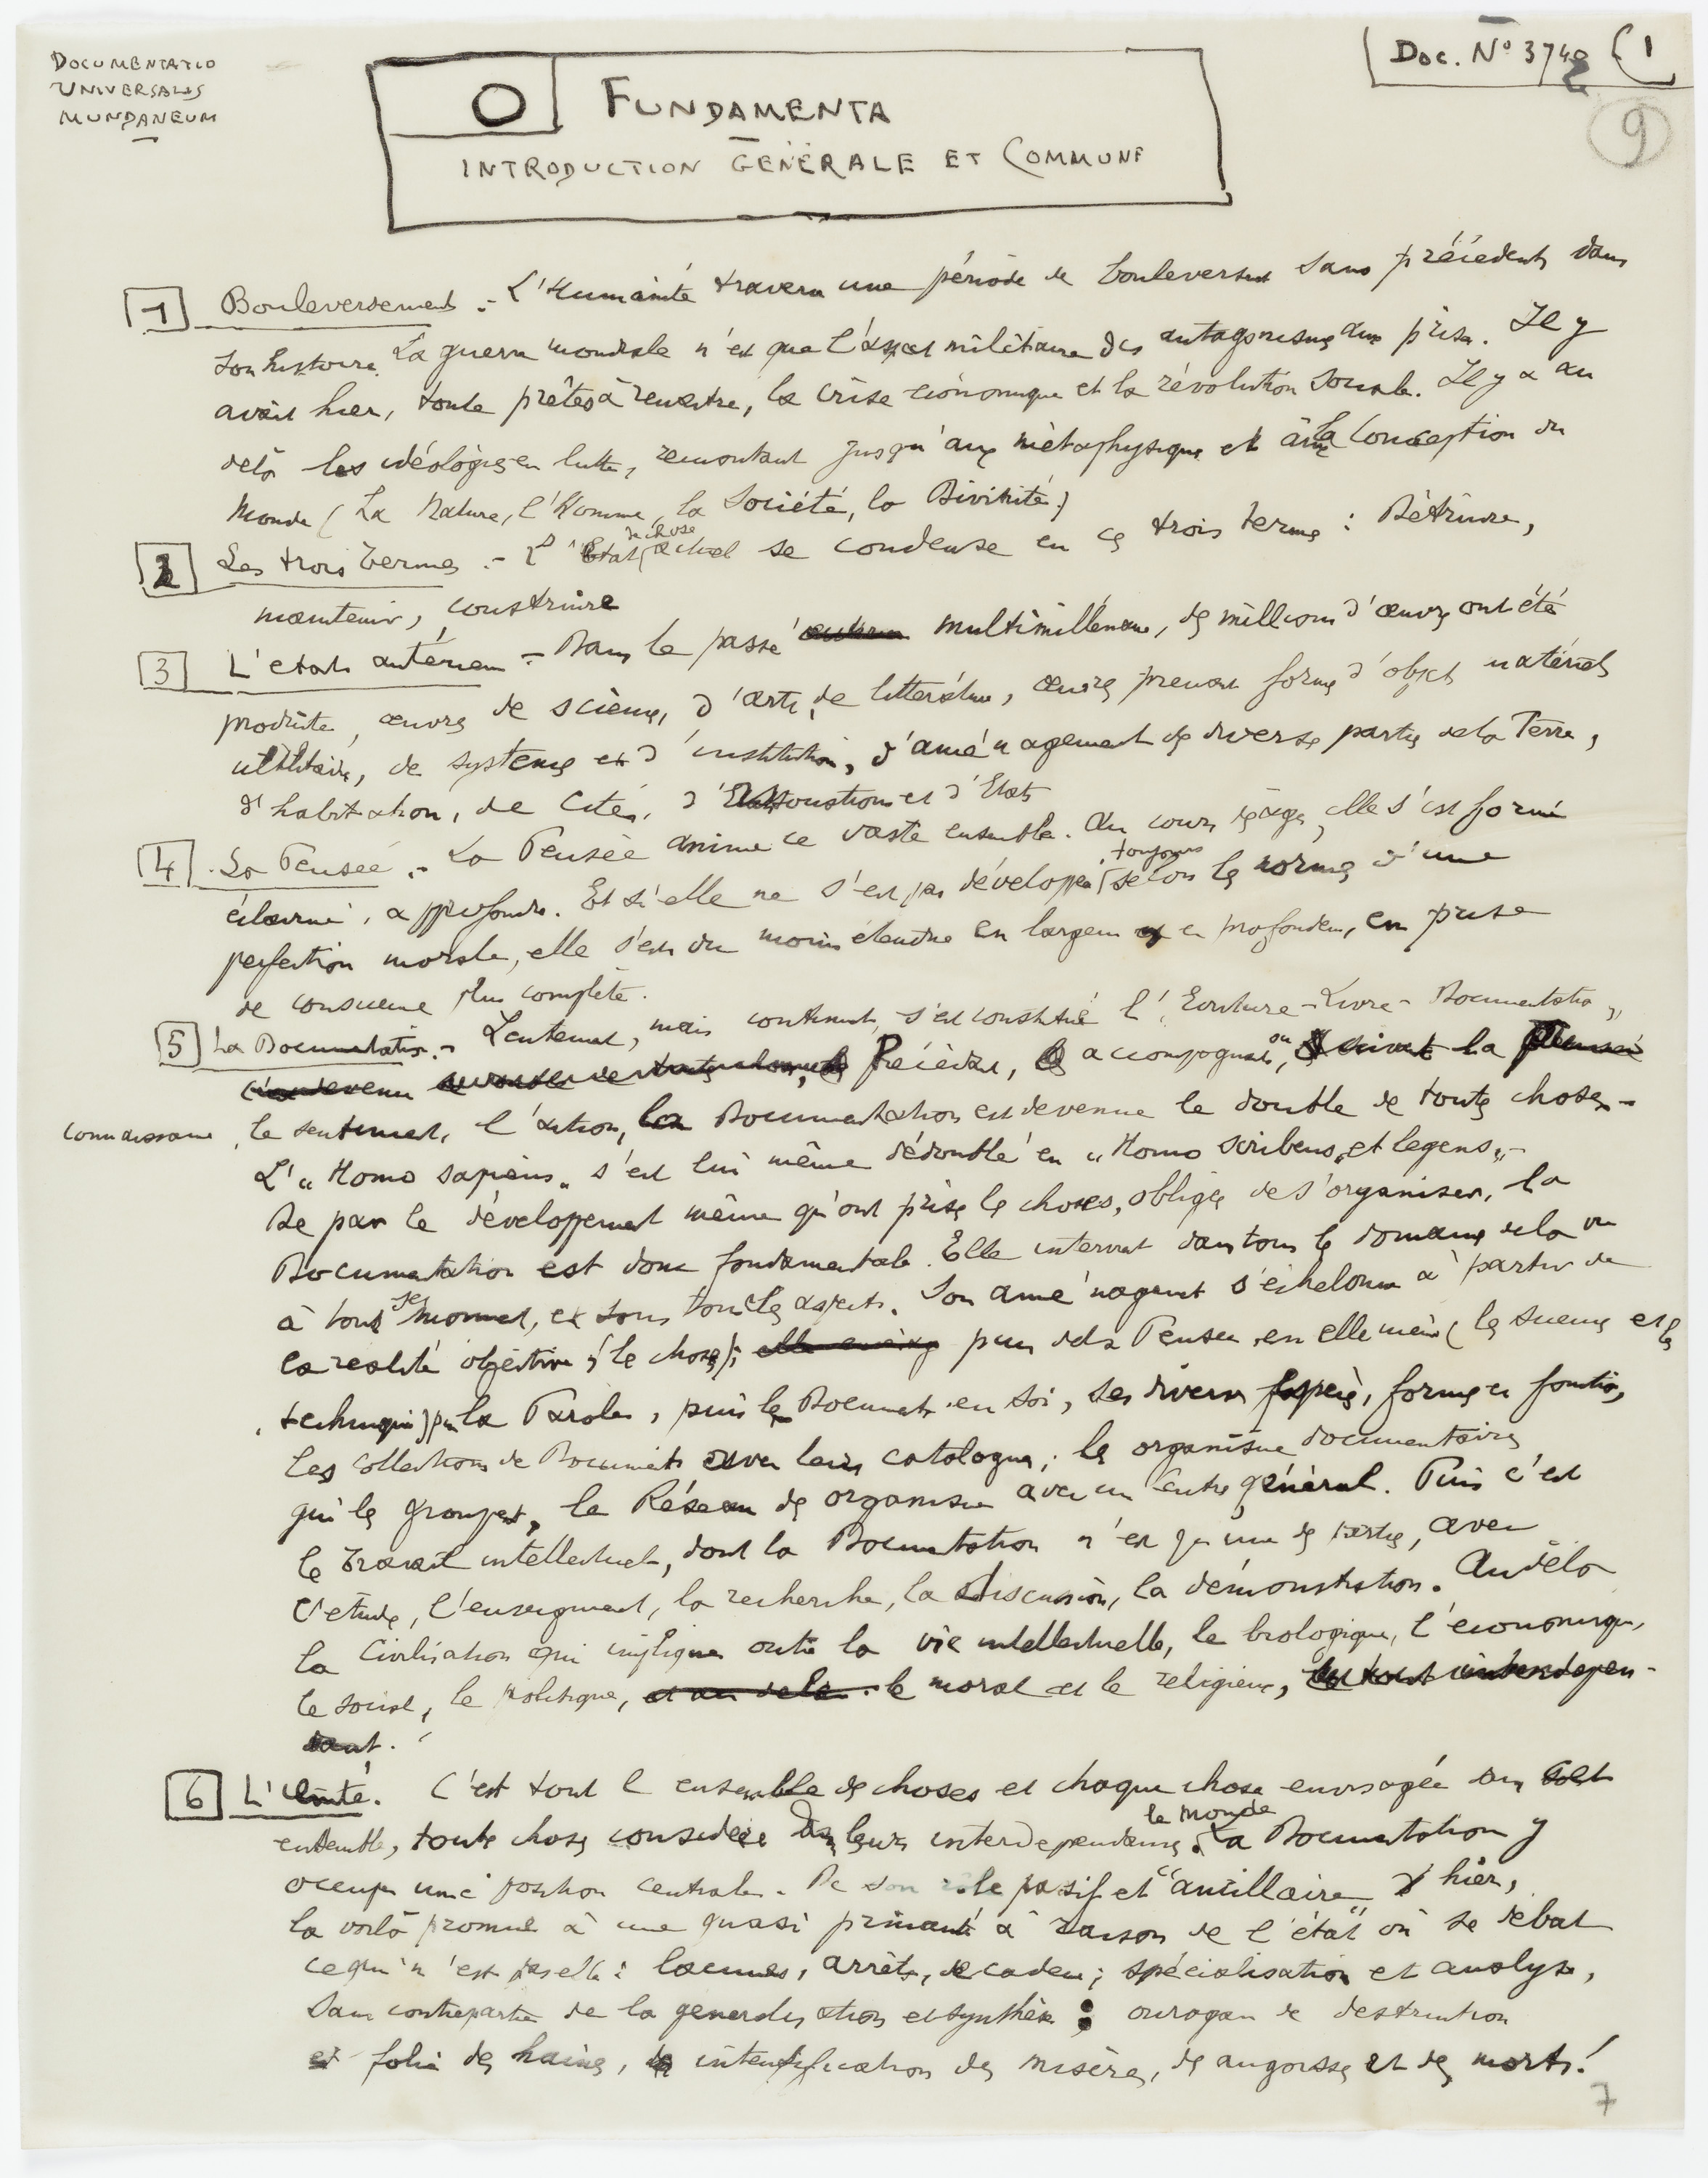 DOCUMENTATIO
UNIVERSALIS
MUNDANEUM
Doc. No 3742 (1
9
O FUNDAMENTA
INTRODUCTION GÉNÉRALE ET COMMUNE
1 Bouleversement .- L'Humanité traverse une période de bouleversement sans précédents dans
son histoire. La guerre mondiale n'est que l'aspect militaire des antagonismes aux prises. Il y
avait hier, toute prêtes à renaitre, la crise économique et la révolution sociale. Il y a au
delà les idéologies en lutte, remontant jusqu'aux métaphysique et à la Conception du
Monde (La Nature, l'Homme, la Société, la Divinité)
2 Les trois termes .- L'Etat de chose actuel se condense en ces trois termes : Détruire,
maintenir, construire
3 L'etat antérieur - Dans le passé multimillénaire, des millions d'œuvres ont été
produites, œuvres de science, d'arts, de littérature, œuvres prenant formes d'objets matériels
utilitaires, de systèmes et d'institutions, d'aménagement des diverses parties de la Terre,
d'habitation, de Cités, d'Associations et d'Etats
4 La Pensée .- La Pensée anime ce vaste ensemble. Au cours des âges, elle s'est formée
éclairée, approfondie. Et si elle ne s'est pas développée toujours selon les normes d'une
perfection morale, elle s'est du moins étendue en largeur et en profondeur, en prise
de conscience plus complète.
5 La Documentation .- Lentement, mais continument, s'est constitué l'Ecriture - Livre - Documentation,,
Précèdant, accompagnant, ou suivant la
connaissance, le sentiment, l'action, la Documentation est devenue le double de toutes choses -
L'"Homo sapiens" s'est lui même dédoublé en "Homo scribens, et legens" -
De par le développement même qu'ont prises les choses, obligées de s'organiser, la
Documentation est donc fondamentale. Elle intervient dans tous les domaines de la vie
à tous ses moments, et sous tous les aspects. Son aménagement s'échelonne à partir de
la réalité objective (les choses); puis de la Pensée en elle même (les sciences et les
techniques) puis la Parole, puis les Documents en soi, ses diverses espèces, formes et fonctions,
les collections de Documents avec leurs catalogues; les organismes documentaires
qui les groupent, le Réseau des organismes avec un Centre général. Puis c'est
le Travail intellectuel, dont la Documentation n'est qu'une des parties, avec
l'étude, l'enseignement, la recherche, la discussion, la démonstration. Au delà
la Civilisation qui implique outre la vie intellectuelle, le biologique, l'économique,
le social, le politique, le moral et le religieux,
6 L'Unité. C'est tout l'ensemble des choses et chaque chose envisagée en
ensemble, toutes choses considérées dans leurs interdependances: le Monde La Documentation y
occupe une position centrale. De son rôle passif et "ancillaire" d'hier,
la voilà promue à une quasi primauté à raison de l'état où se débat
ce qui n'est pas elle : lacunes, arrêts, décadence; spécialisation et analyse,
sans contrepartie de la generalisation et synthèse : ouragan de destruction
et folie des haines, intensification des misères, des angoisses et des morts!
7